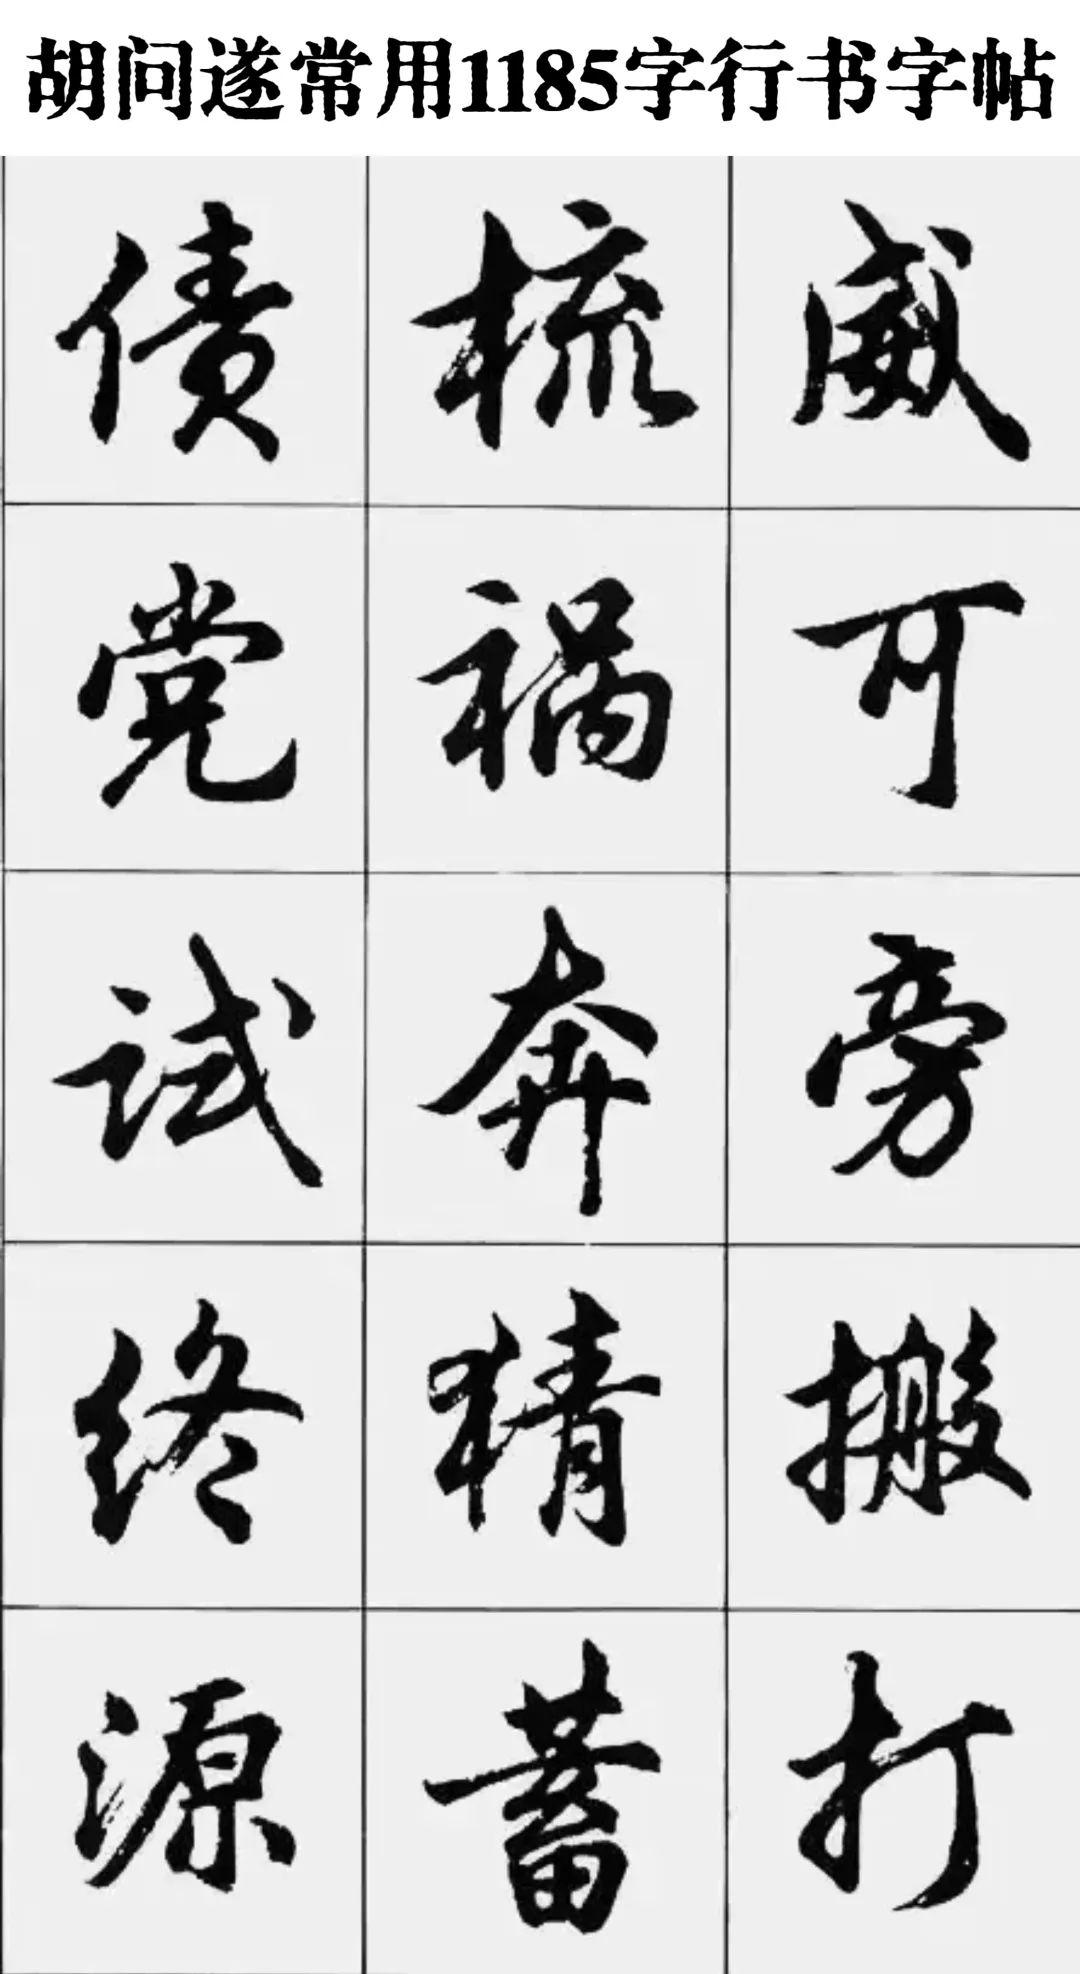 胡问遂常用1185字行书字帖
债 梳 威
党 祸 可
试 奔 旁
终 猜 搬
源 蓄 打